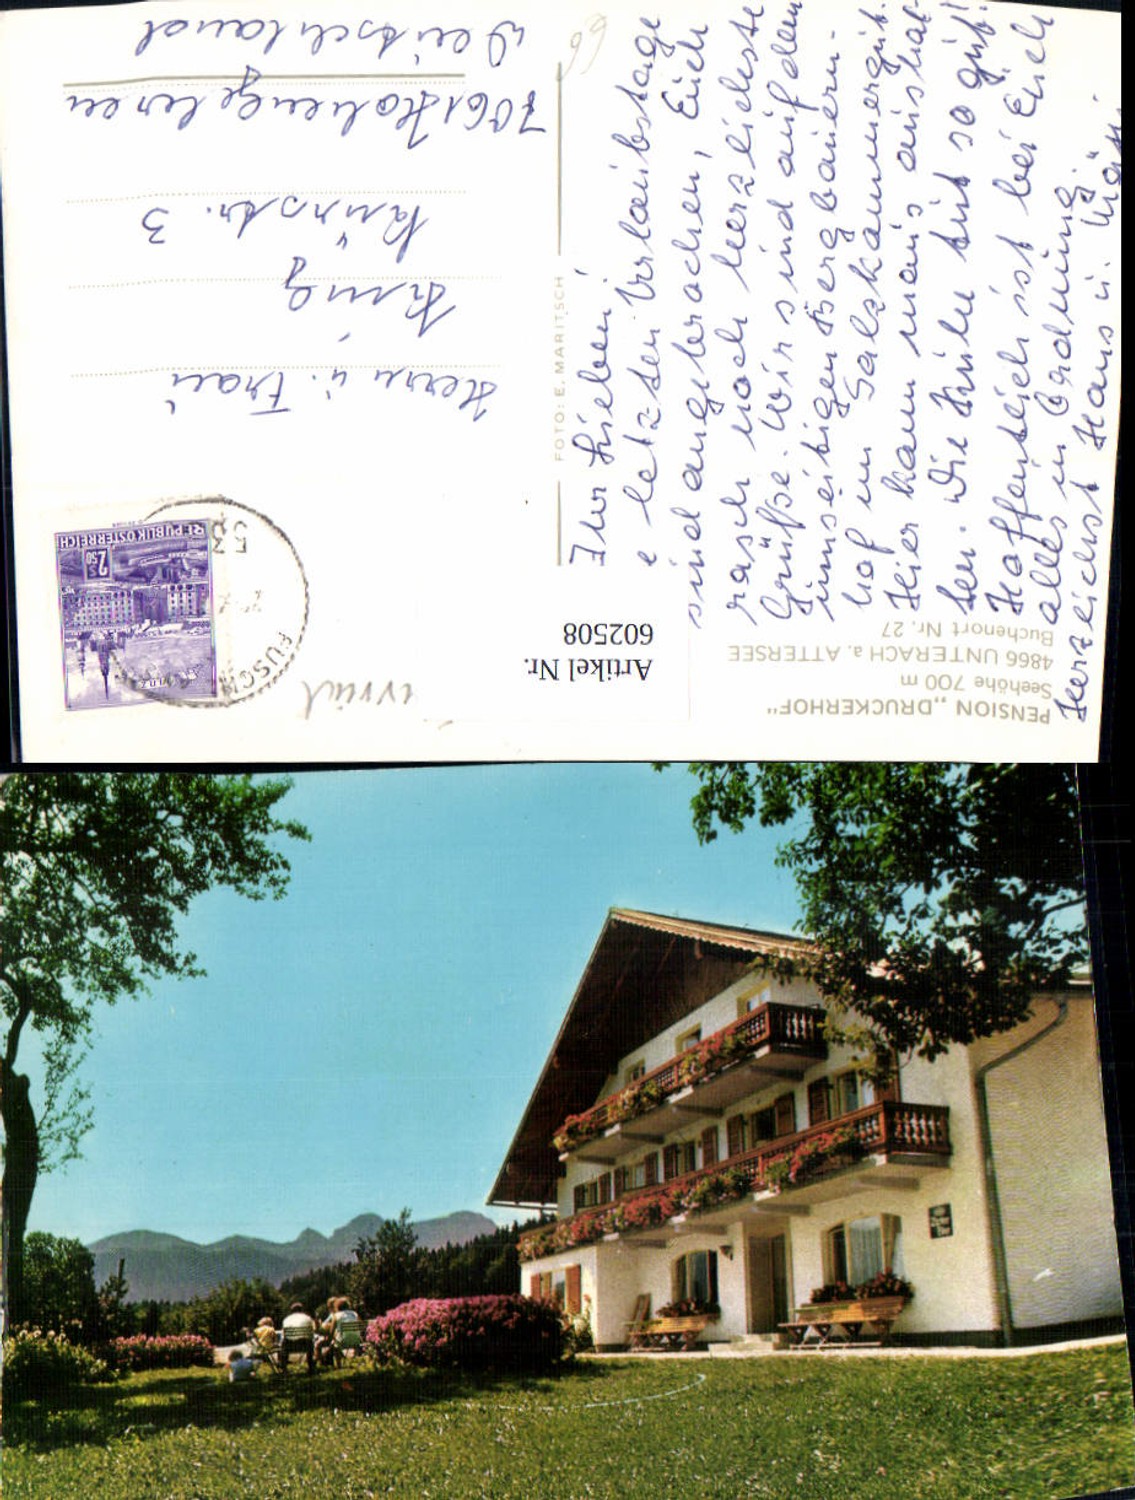 PENSION „DRUCKERHOF"
Seehöhe 700 m
4866 UNTERACH a. ATTERSEE
Buchenort Nr. 27
Artikel Nr.
602508
FOTO: E. MARITSCH
REPUBLIK ÖSTERREICH
S 2.50
FUSCH
Herrn u. Frau
Krug
3
7061 Hohengehren
Deutschland
Ihr Lieben!
letzten Urlaubstage
sind angebrochen, Euch
rasch noch herzlichste
Grüße. Wir sind auf dem
Bergbauern-
hof im Salzkammergut.
Hier kann man's aushal-
ten. Die Ruhe tut so gut!
Hoffentlich ist bei Euch
alles in Ordnung.
Herzlichst Hans u.